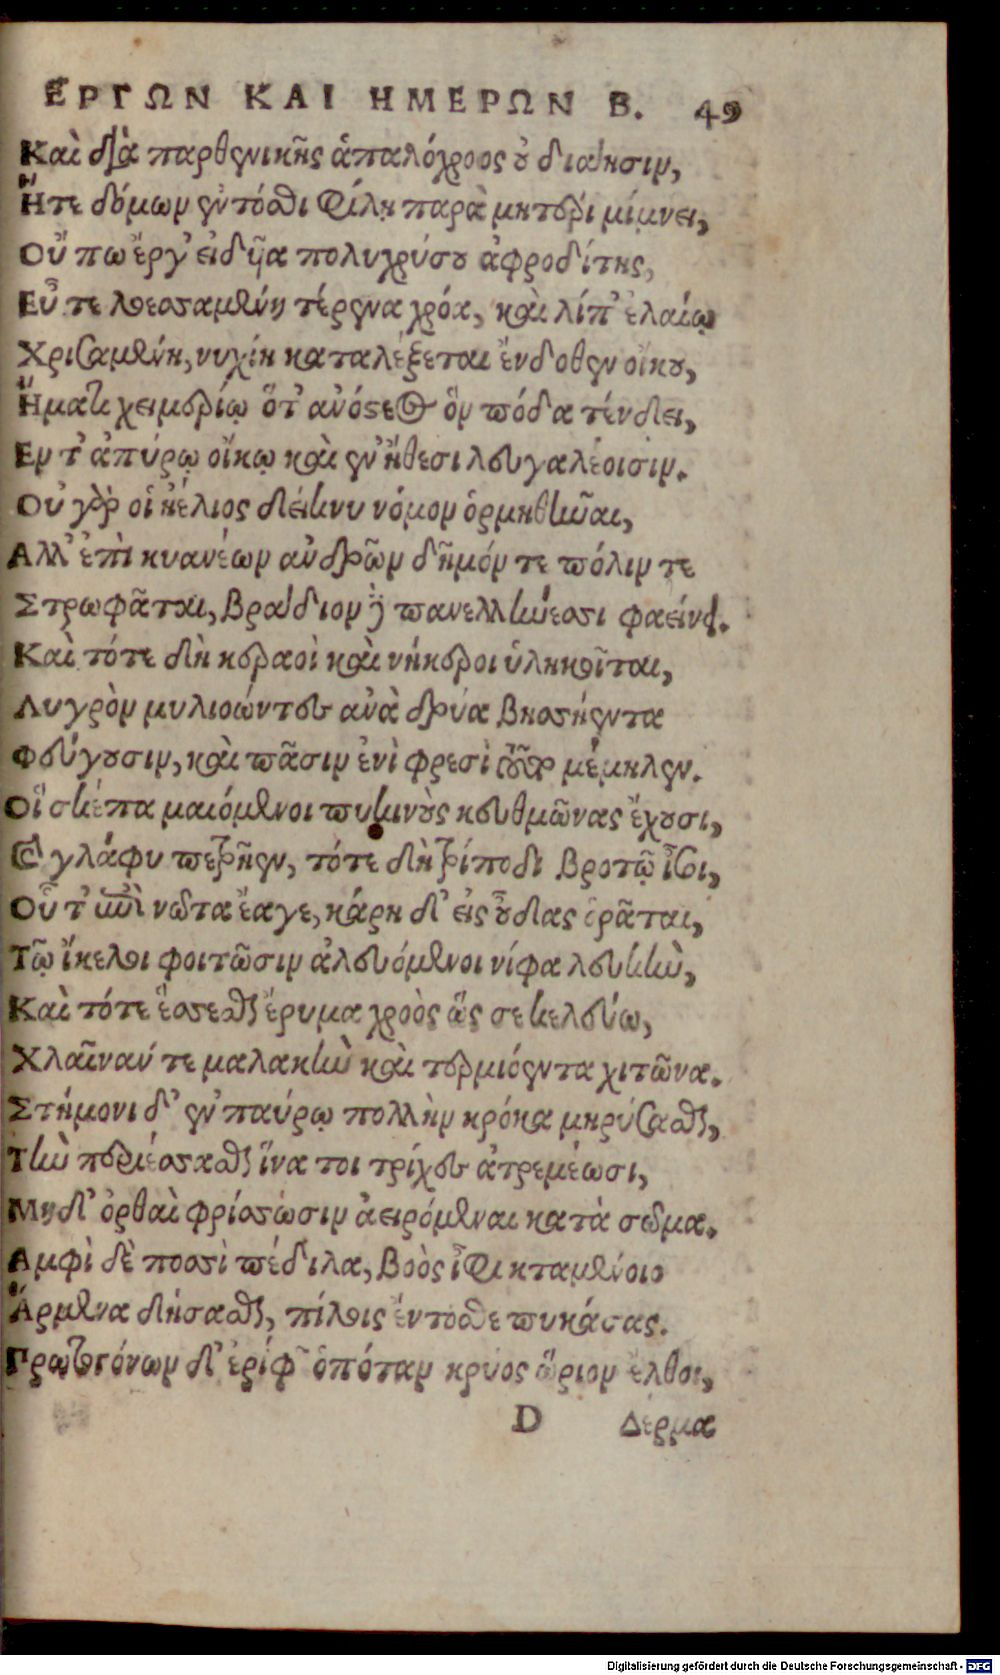 ΕΡΓΩΝ ΚΑΙ ΗΜΕΡΩΝ Β. 49
Καὶ διὰ παρθενικῆς ἁπαλόχροος οὐ διάησιν,
Ἥτε δόμων ἔντοσθι φίλῃ παρὰ μητέρι μίμνει,
Οὔ πω ἔργ' εἰδυῖα πολυχρύσου ἀφροδίτης,
Εὖ τε λοεσσαμένη τέρενα χρόα, καὶ λίπ' ἐλαίῳ
Χρισαμένη, νυχίη καταλέξεται ἔνδοθεν οἴκου,
Ἤματι χειμερίῳ ὅτ' ἀνόστεος ὃν πόδα τένδει,
Εν τ' ἀπύρῳ οἴκῳ καὶ ἐν ἤθεσι λευγαλέοισιν.
Οὐ γάρ οἱ ἠέλιος δείκνυ νόμον ὁρμηθῆναι,
Αλλ' ἐπὶ κυανέων ἀνδρῶν δῆμόν τε πόλιν τε
Στρωφᾶται, βράδιον δὲ πανελλήνεσσι φαείνει.
Καὶ τότε δὴ κεραοὶ καὶ νήκεροι ὑληκοῖται,
Λυγρὸν μυλιόωντες ἀνὰ δρύα βησσήεντα
Φεύγουσιν, καὶ πᾶσιν ἐνὶ φρεσὶ τοῦτο μέμηλεν.
Οἳ σκέπα μαιόμενοι πυκινοὺς κευθμῶνας ἔχουσι,
Καὶ γλάφυ πετρῆεν, τότε δὴ τρίποδι βροτῷ ἶσοι,
Οὗ τ' ἐπὶ νῶτα ἔαγε, κάρη δ' εἰς οὖδας ὁρᾶται,
Τῷ ἴκελοι φοιτῶσιν ἀλευόμενοι νίφα λευκὴν,
Καὶ τότε ἕσσεσθαι ἔρυμα χροὸς ὥς σε κελεύω,
Χλαῖναν τε μαλακὴν καὶ τερμιόεντα χιτῶνα.
Στήμονι δ' ἐν παύρῳ πολλὴν κρόκα μηρύσασθαι,
Τὴν περιέσσασθαι ἵνα τοι τρίχες ἀτρεμέωσι,
Μηδ' ὀρθαὶ φρίσσωσιν ἀειρόμεναι κατὰ σῶμα.
Αμφὶ δὲ ποσσὶ πέδιλα, βοὸς ἶφι κταμένοιο
Ἄρμενα δήσασθαι, πίλοις ἔντοσθε πυκάσας.
Πρωτογόνων δ' ἐρίφων ὁπόταν κρύος ὥριον ἔλθοι,
D Δέρμα
Digitalisierung gefördert durch die Deutsche Forschungsgemeinschaft - DFG